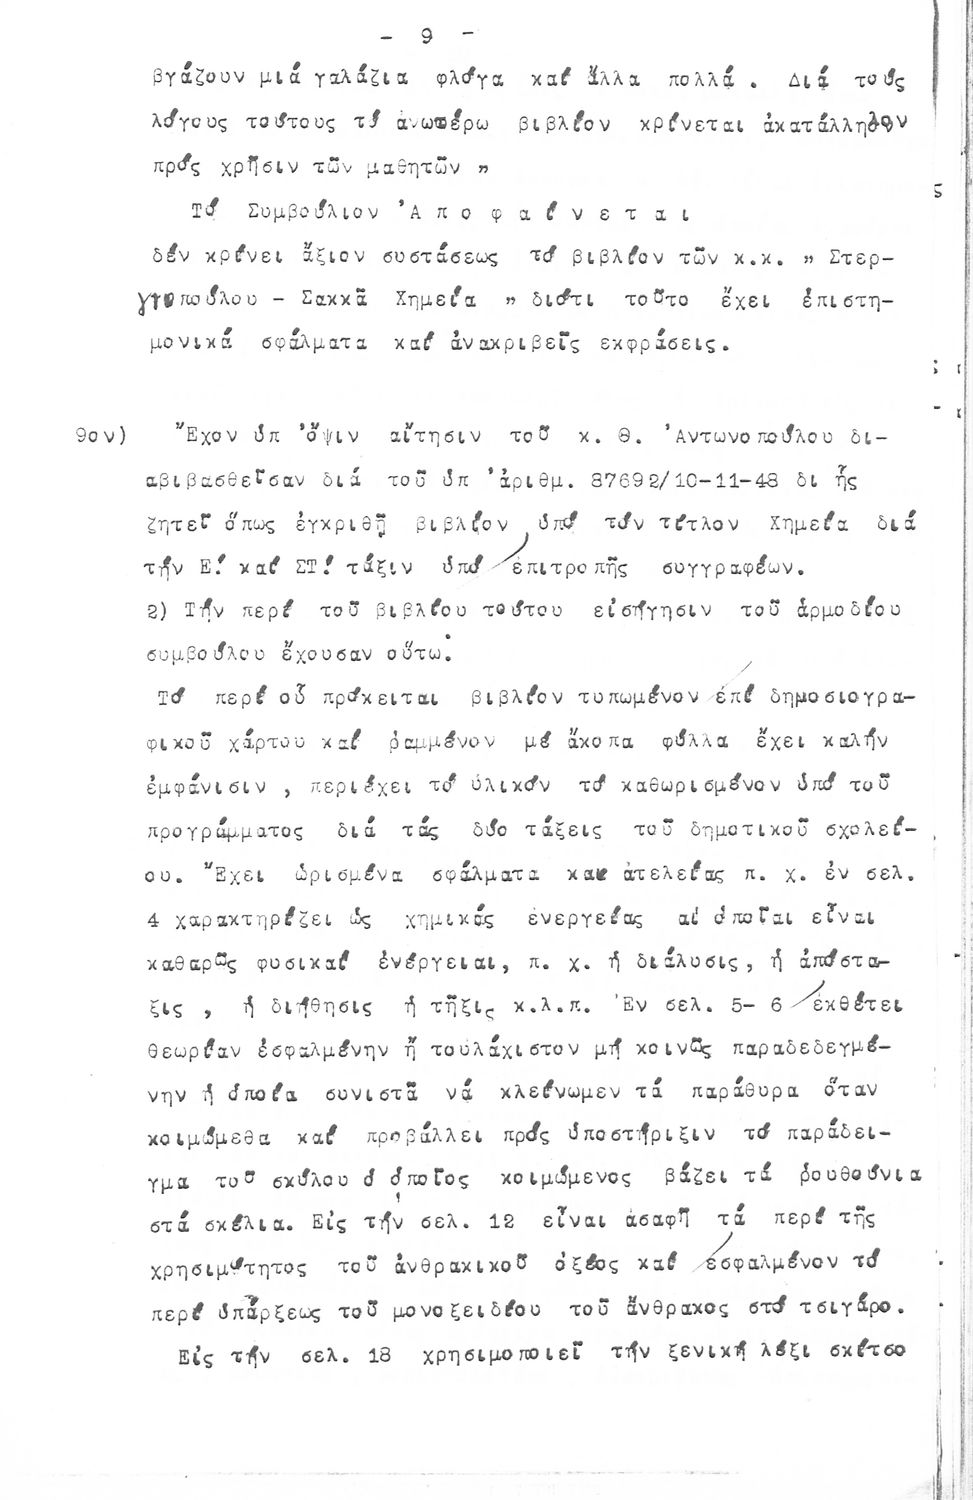 - 9 -
βγάζουν μιά γαλάζια φλόγα καί ἄλλα πολλά . Διά τούς
λόγους τούτους τό ἀνωτέρω βιβλίον κρίνεται ἀκατάλληλον
πρός χρῆσιν τῶν μαθητῶν "
Τό Συμβούλιον 'Α π ο φ α ί ν ε τ α ι
δέν κρίνει ἄξιον συστάσεως τό βιβλίον τῶν κ.κ. " Στερ-
γιοπούλου - Σακκᾶ Χημεία " διότι τοῦτο ἔχει ἐπιστη-
μονικά σφάλματα καί ἀνακριβεῖς εκφράσεις.
9ον) "Εχον ὑπ 'ὄψιν αἴτησιν τοῦ κ. Θ. 'Αντωνοπούλου δι-
αβιβασθεῖσαν διά τοῦ ὑπ 'ἀριθμ. 87692/10-11-48 δι ἧς
ζητεῖ ὅπως ἐγκριθῇ βιβλίον ὑπό τόν τίτλον Χημεία διά
τήν Ε! καί ΣΤ! τάξιν ὑπό ἐπιτροπῆς συγγραφέων.
2) Τήν περί τοῦ βιβλίου τούτου εἰσήγησιν τοῦ ἁρμοδίου
συμβούλου ἔχουσαν οὕτω:
Τό περί οὗ πρόκειται βιβλίον τυπωμένον ἐπί δημοσιογρα-
φικοῦ χάρτου καί ῥαμμένον μέ ἄκοπα φύλλα ἔχει καλήν
ἐμφάνισιν , περιέχει τό ὑλικόν τό καθωρισμένον ὑπό τοῦ
προγράμματος διά τάς δύο τάξεις τοῦ δημοτικοῦ σχολεί-
ου. "Εχει ὡρισμένα σφάλματα και ἀτελείας π. χ. ἐν σελ.
4 χαρακτηρίζει ὡς χημικάς ἐνεργείας αἱ ὁποῖαι εἶναι
καθαρῶς φυσικαί ἐνέργειαι, π. χ. ἡ διάλυσις, ἡ ἀπόστα-
ξις , ἡ διήθησις ἡ τῆξις κ.λ.π. 'Εν σελ. 5- 6 ἐκθέτει
θεωρίαν ἐσφαλμένην ἤ τουλάχιστον μή κοινῶς παραδεδεγμέ-
νην ἡ ὁποία συνιστᾶ νά κλείνωμεν τά παράθυρα ὅταν
κοιμώμεθα καί προβάλλει πρός ὑποστήριξιν τό παράδει-
γμα τοῦ σκύλου ὁ ὁποῖος κοιμώμενος βάζει τά ῥουθούνια
στά σκέλια. Εἰς τήν σελ. 12 εἶναι ἀσαφῆ τά περί τῆς
χρησιμότητος τοῦ ἀνθρακικοῦ ὀξέος καί ἐσφαλμένον τό
περί ὑπάρξεως τοῦ μονοξειδίου τοῦ ἄνθρακος στό τσιγάρο.
Εἰς τήν σελ. 18 χρησιμοποιεῖ τήν ξενική λέξι σκίτσο